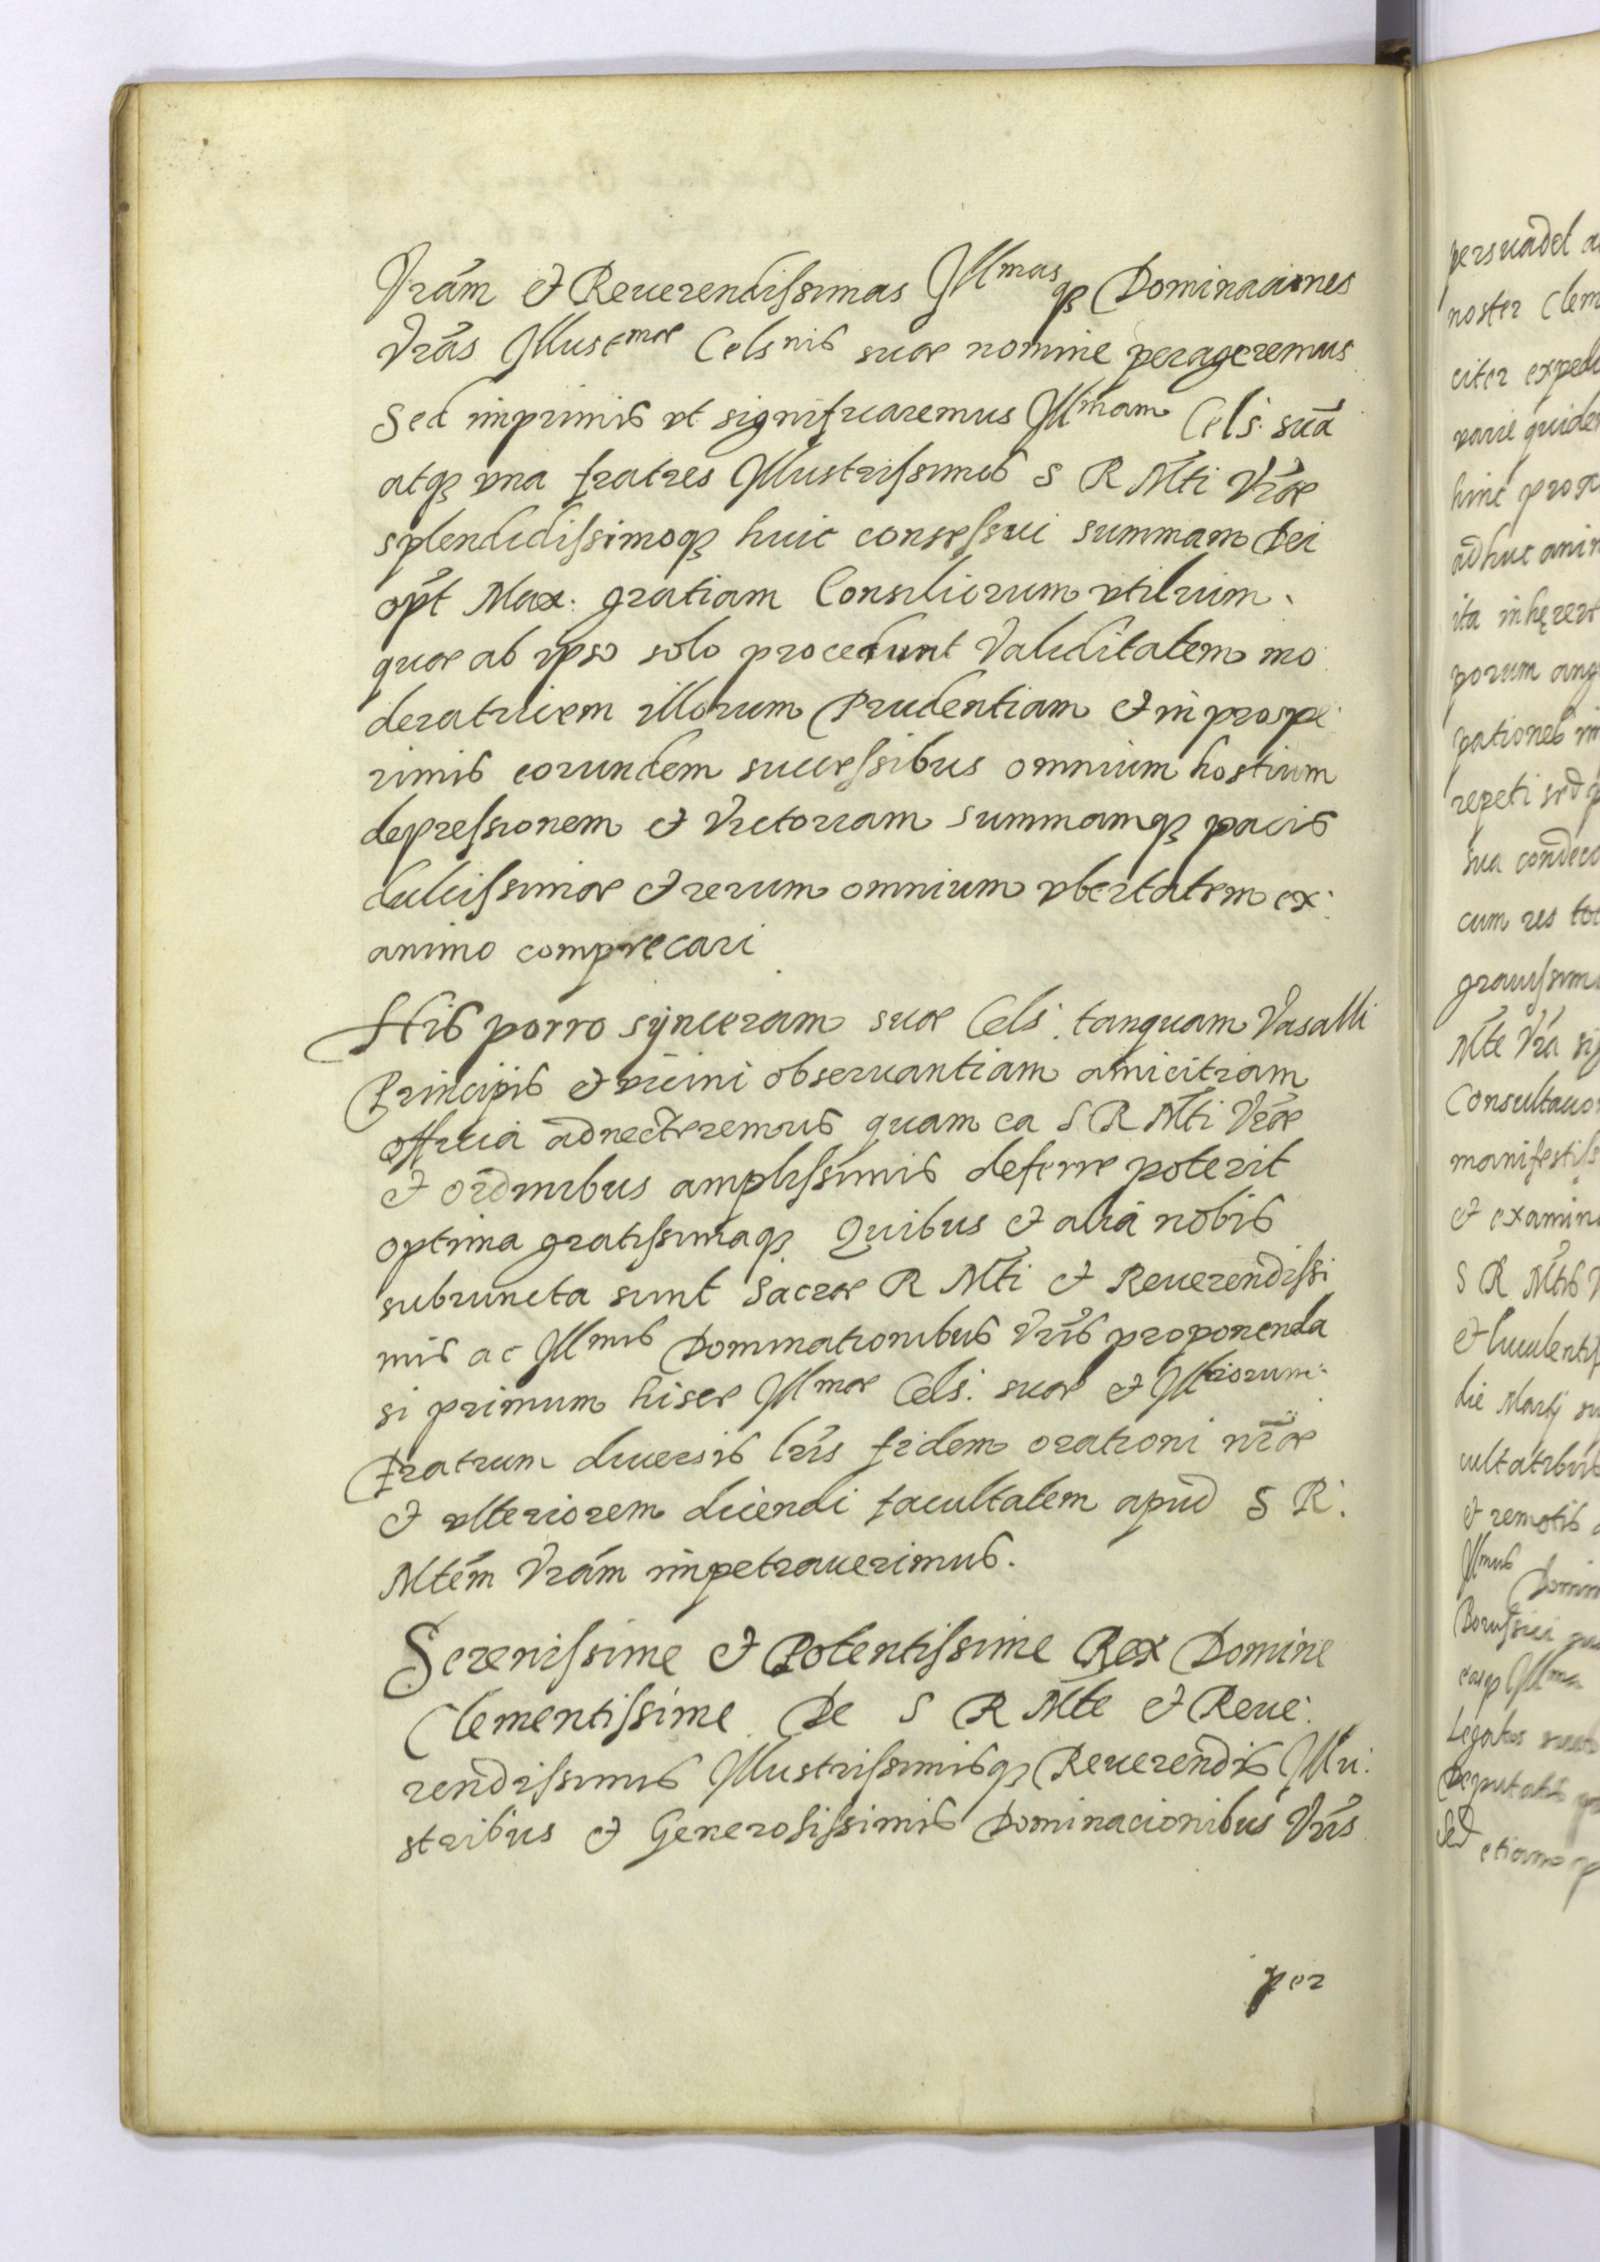 Vram et Reuerendissimas Illmas q3 Dominaciones
Vras Illustmae Celsnis suae nomine perageremus
Sed imprimis vt significaremus Illmam Cels: sua
atq3 vna fratres Illustrissimos S R Mti Vrae
splendidissimoq3 huic consessui summam Dei
opt Max: gratiam Consiliorum vtilium.
quae ab ipso solo procedunt Validitatem mo
deratricem illorum Prudentiam et in prospe
rimis eorundem successibus omnium hostium
depressionem et Victoriam summamq3 pacis
dulcissimae et rerum omnium vbertatem ex:
animo comprecari
His porro synceram suae Cels: tanquam Vasalli
Principis et vicini obseruantiam amicitiam
officia adnecteremus quam ea S R Mti Vrae
et ordinibus amplissimis deferre poterit
optima gratissimaq3 Quibus et alia nobis
subiuncta sunt Sacrae R Mti et Reuerendissi
mis ac Illmis Dominationibus Vris proponenda
si primum hisce Illmae Cels: suae et Illtriorum:
Fratrum diuersis lris fidem orationi nrae
et vlteriorem dicendi facultatem apud S R:
Mtem Vram impetrauerimus.
Serenissime et Potentissime Rex Domine
Clementissime De S R Mte et Reue:
rendissimis Illustrissimisq3 Reuerendis Illu:
stribus et Generosissimis Dominacionibus Vris
per
persuadet
noster Clem
citer exped
varie quide
hinc
adhuc
ita inhęret
porum ang
pationes
repeti sed
sua
cum res
grauissim
Mte Vra
Consultacio
manifestiss
et examin
S R Mtis
et luculentis
die Martij
et remotis
Illmus Domin
Borussiae
Legatos
Deputatis
Sed etiam